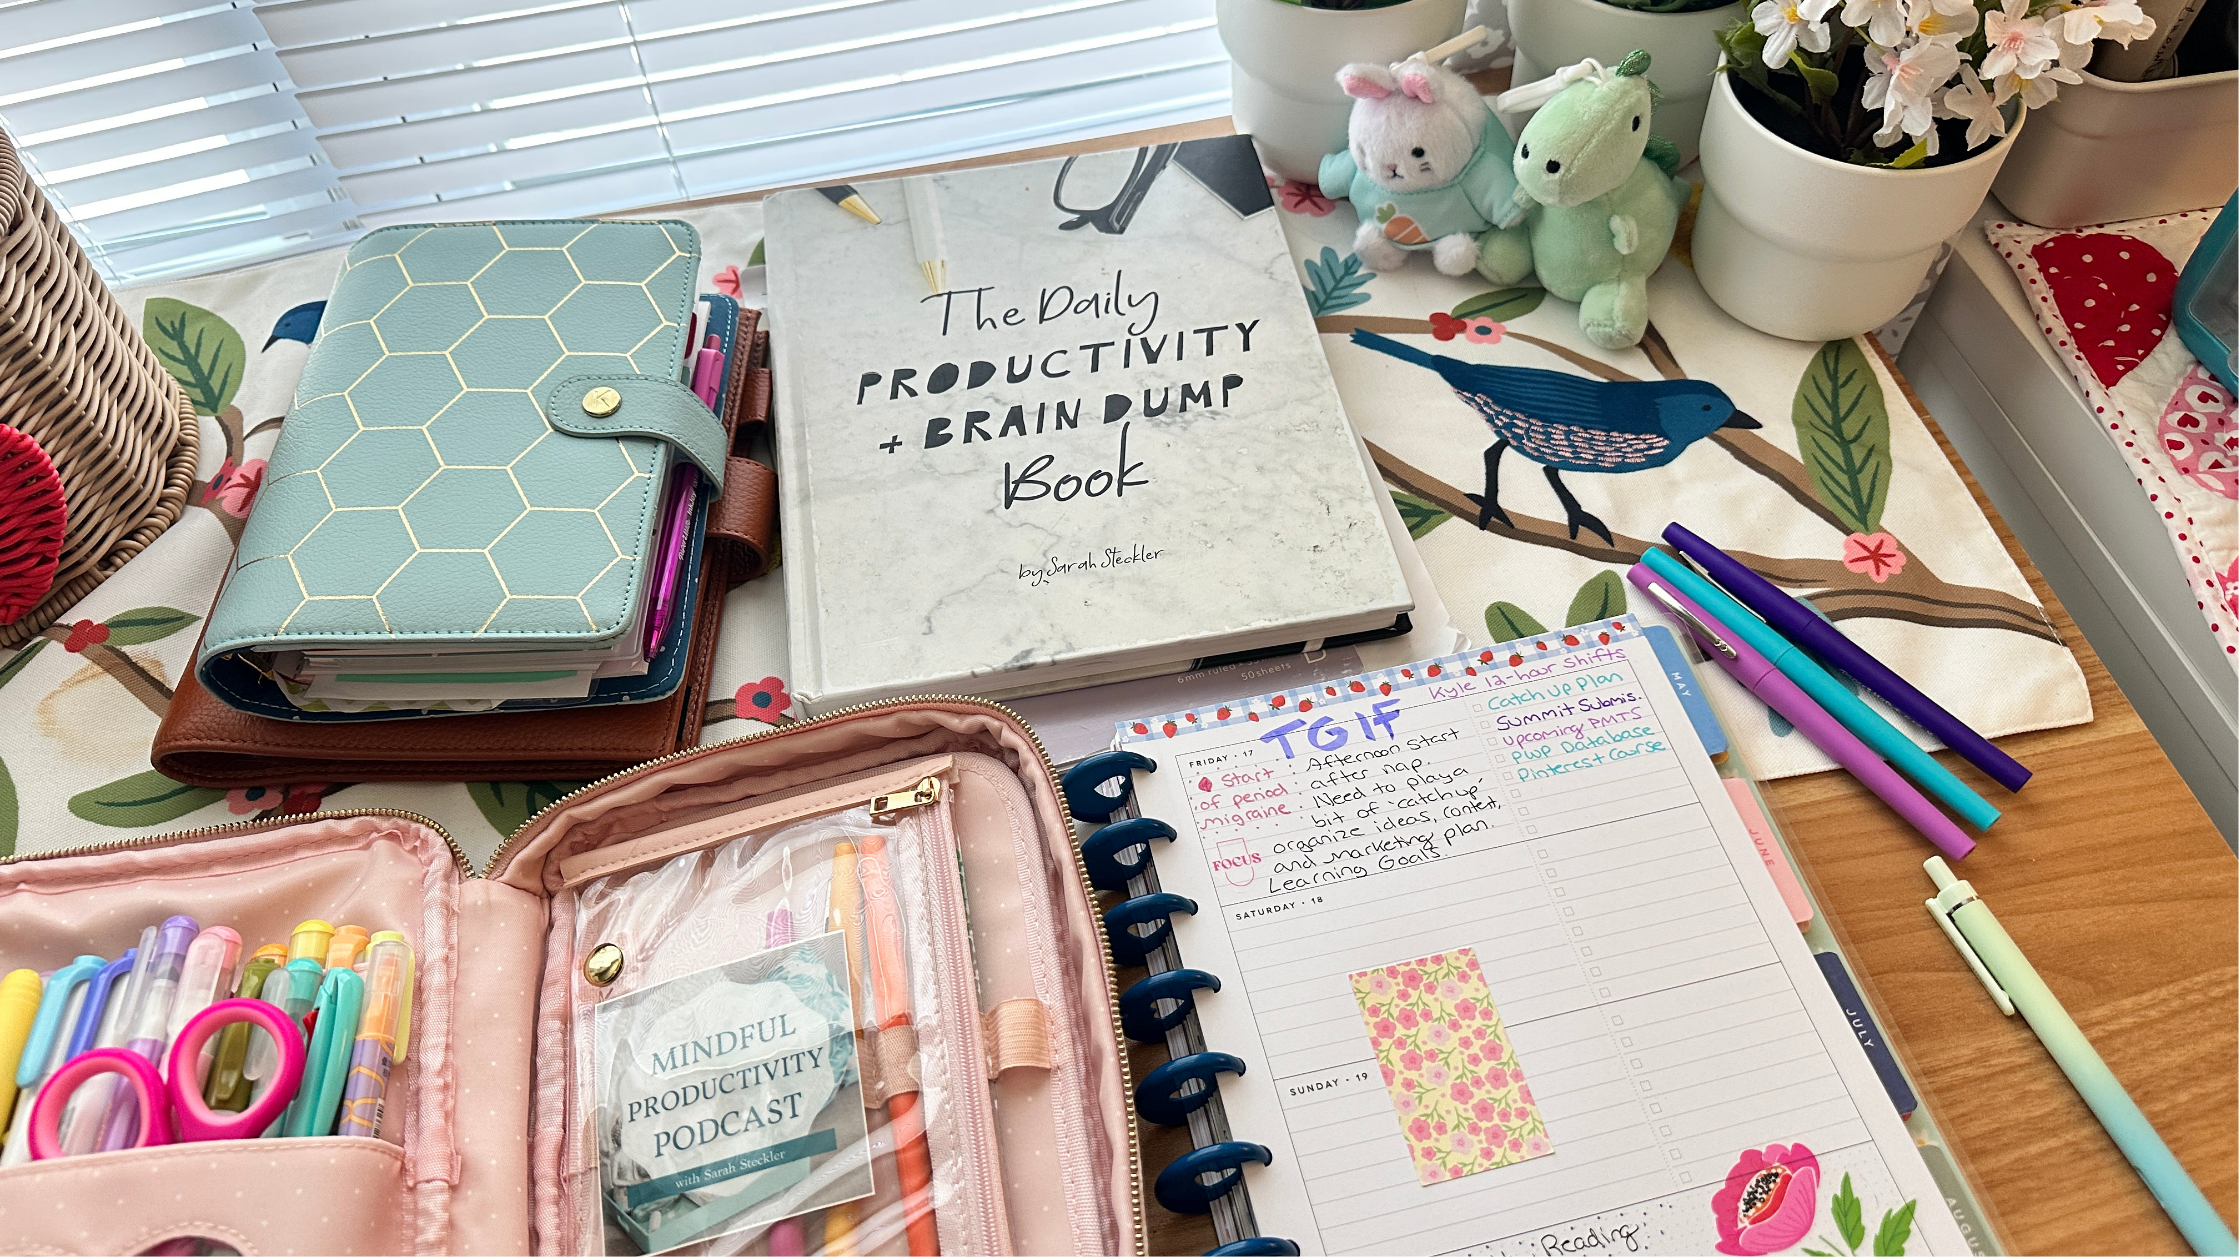 The Daily
PRODUCTIVITY
+ BRAIN DUMP
Book
by Sarah Steckler
6mm ruled
50 sheets
MINDFUL
PRODUCTIVITY
PODCAST
with Sarah Steckler
Kyle 12-hour shifts
TGIF
FRIDAY • 17
Start
of period
migraine
FOCUS
Afternoon start
after nap.
Need to play a
bit of "catch up",
organize ideas, content,
and marketing plan.
Learning Goals.
Catch Up Plan
Summit Submis.
Upcoming PMTS
PWP Database
Pinterest Course
SATURDAY • 18
SUNDAY • 19
Reading
MAY
JUNE
JULY
AUGUS